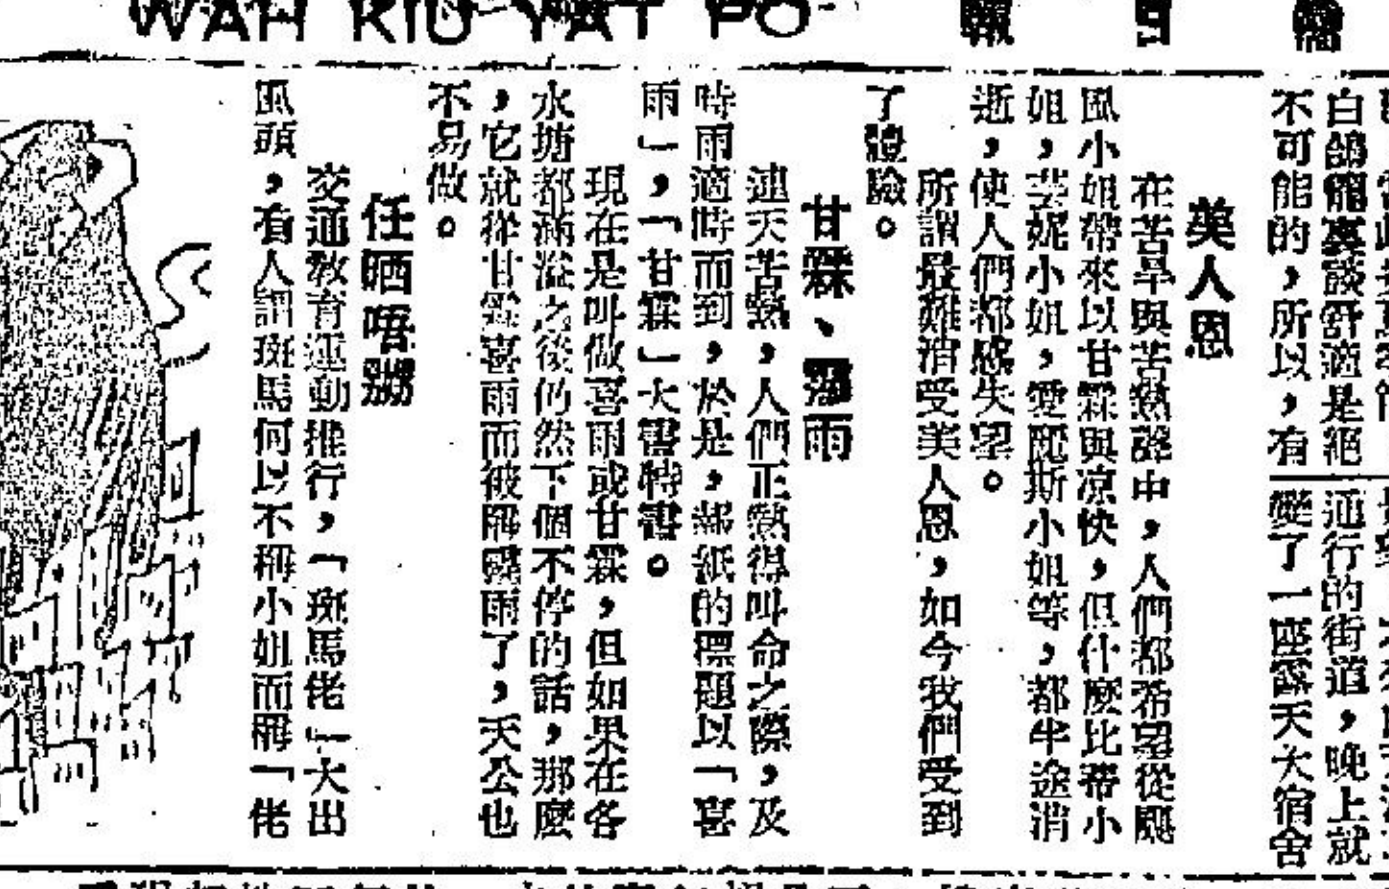 WAH KIU YAT PO
報日僑
白鴿籠裏談舒適是絕
不可能的，所以，有
通行的街道，晚上就
變了一座露天大宿舍
美人恩
在苦旱與苦熱聲中，人們都希望從颶
風小姐帶來以甘霖與凉快，但什麼比蒂小
姐，芸妮小姐，愛麗斯小姐等，都半途消
逝，使人們都感失望。
所謂最難消受美人恩，如今我們受到
了證驗。
甘霖、霪雨
連天苦熱，人們正熱得叫命之際，及
時雨適時而到，於是，報紙的標題以「喜
雨」，「甘霖」大書特書。
現在是叫做喜雨或甘霖，但如果在各
水塘都滿溢之後仍然下個不停的話，那麼
，它就從甘霖喜雨而被稱霪雨了，天公也
不易做。
任晒唔嬲
交通教育運動推行，「斑馬佬」大出
風頭，有人謂斑馬何以不稱小姐而稱「佬